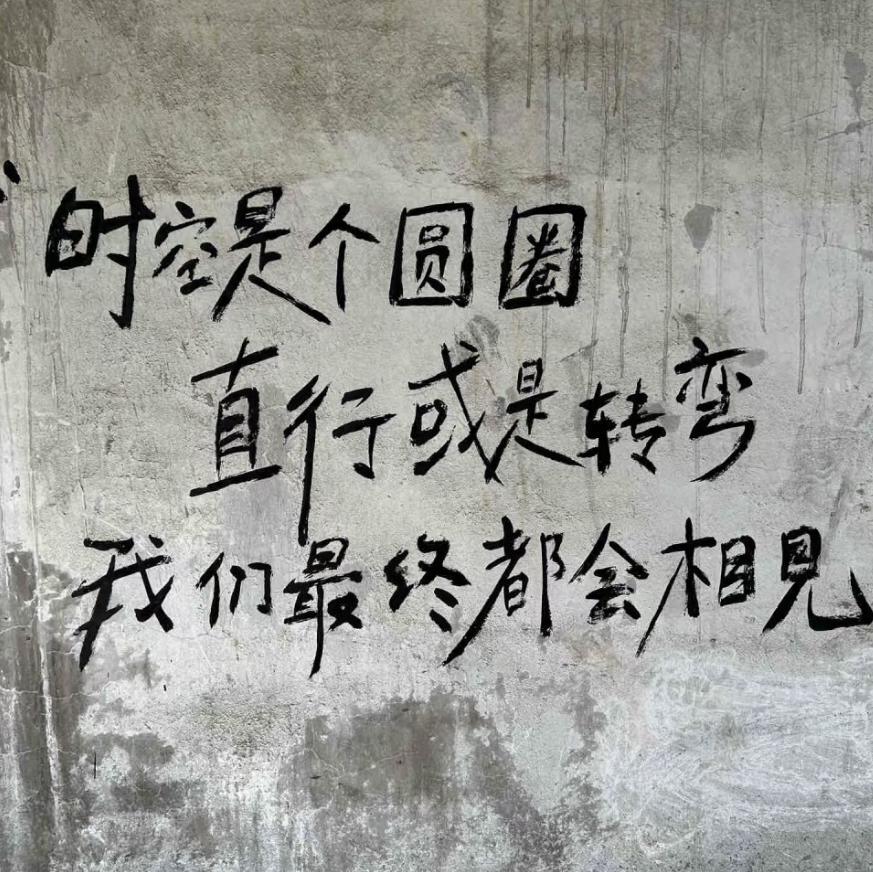 时空是个圆圈
直行或是转弯
我们最终都会相见